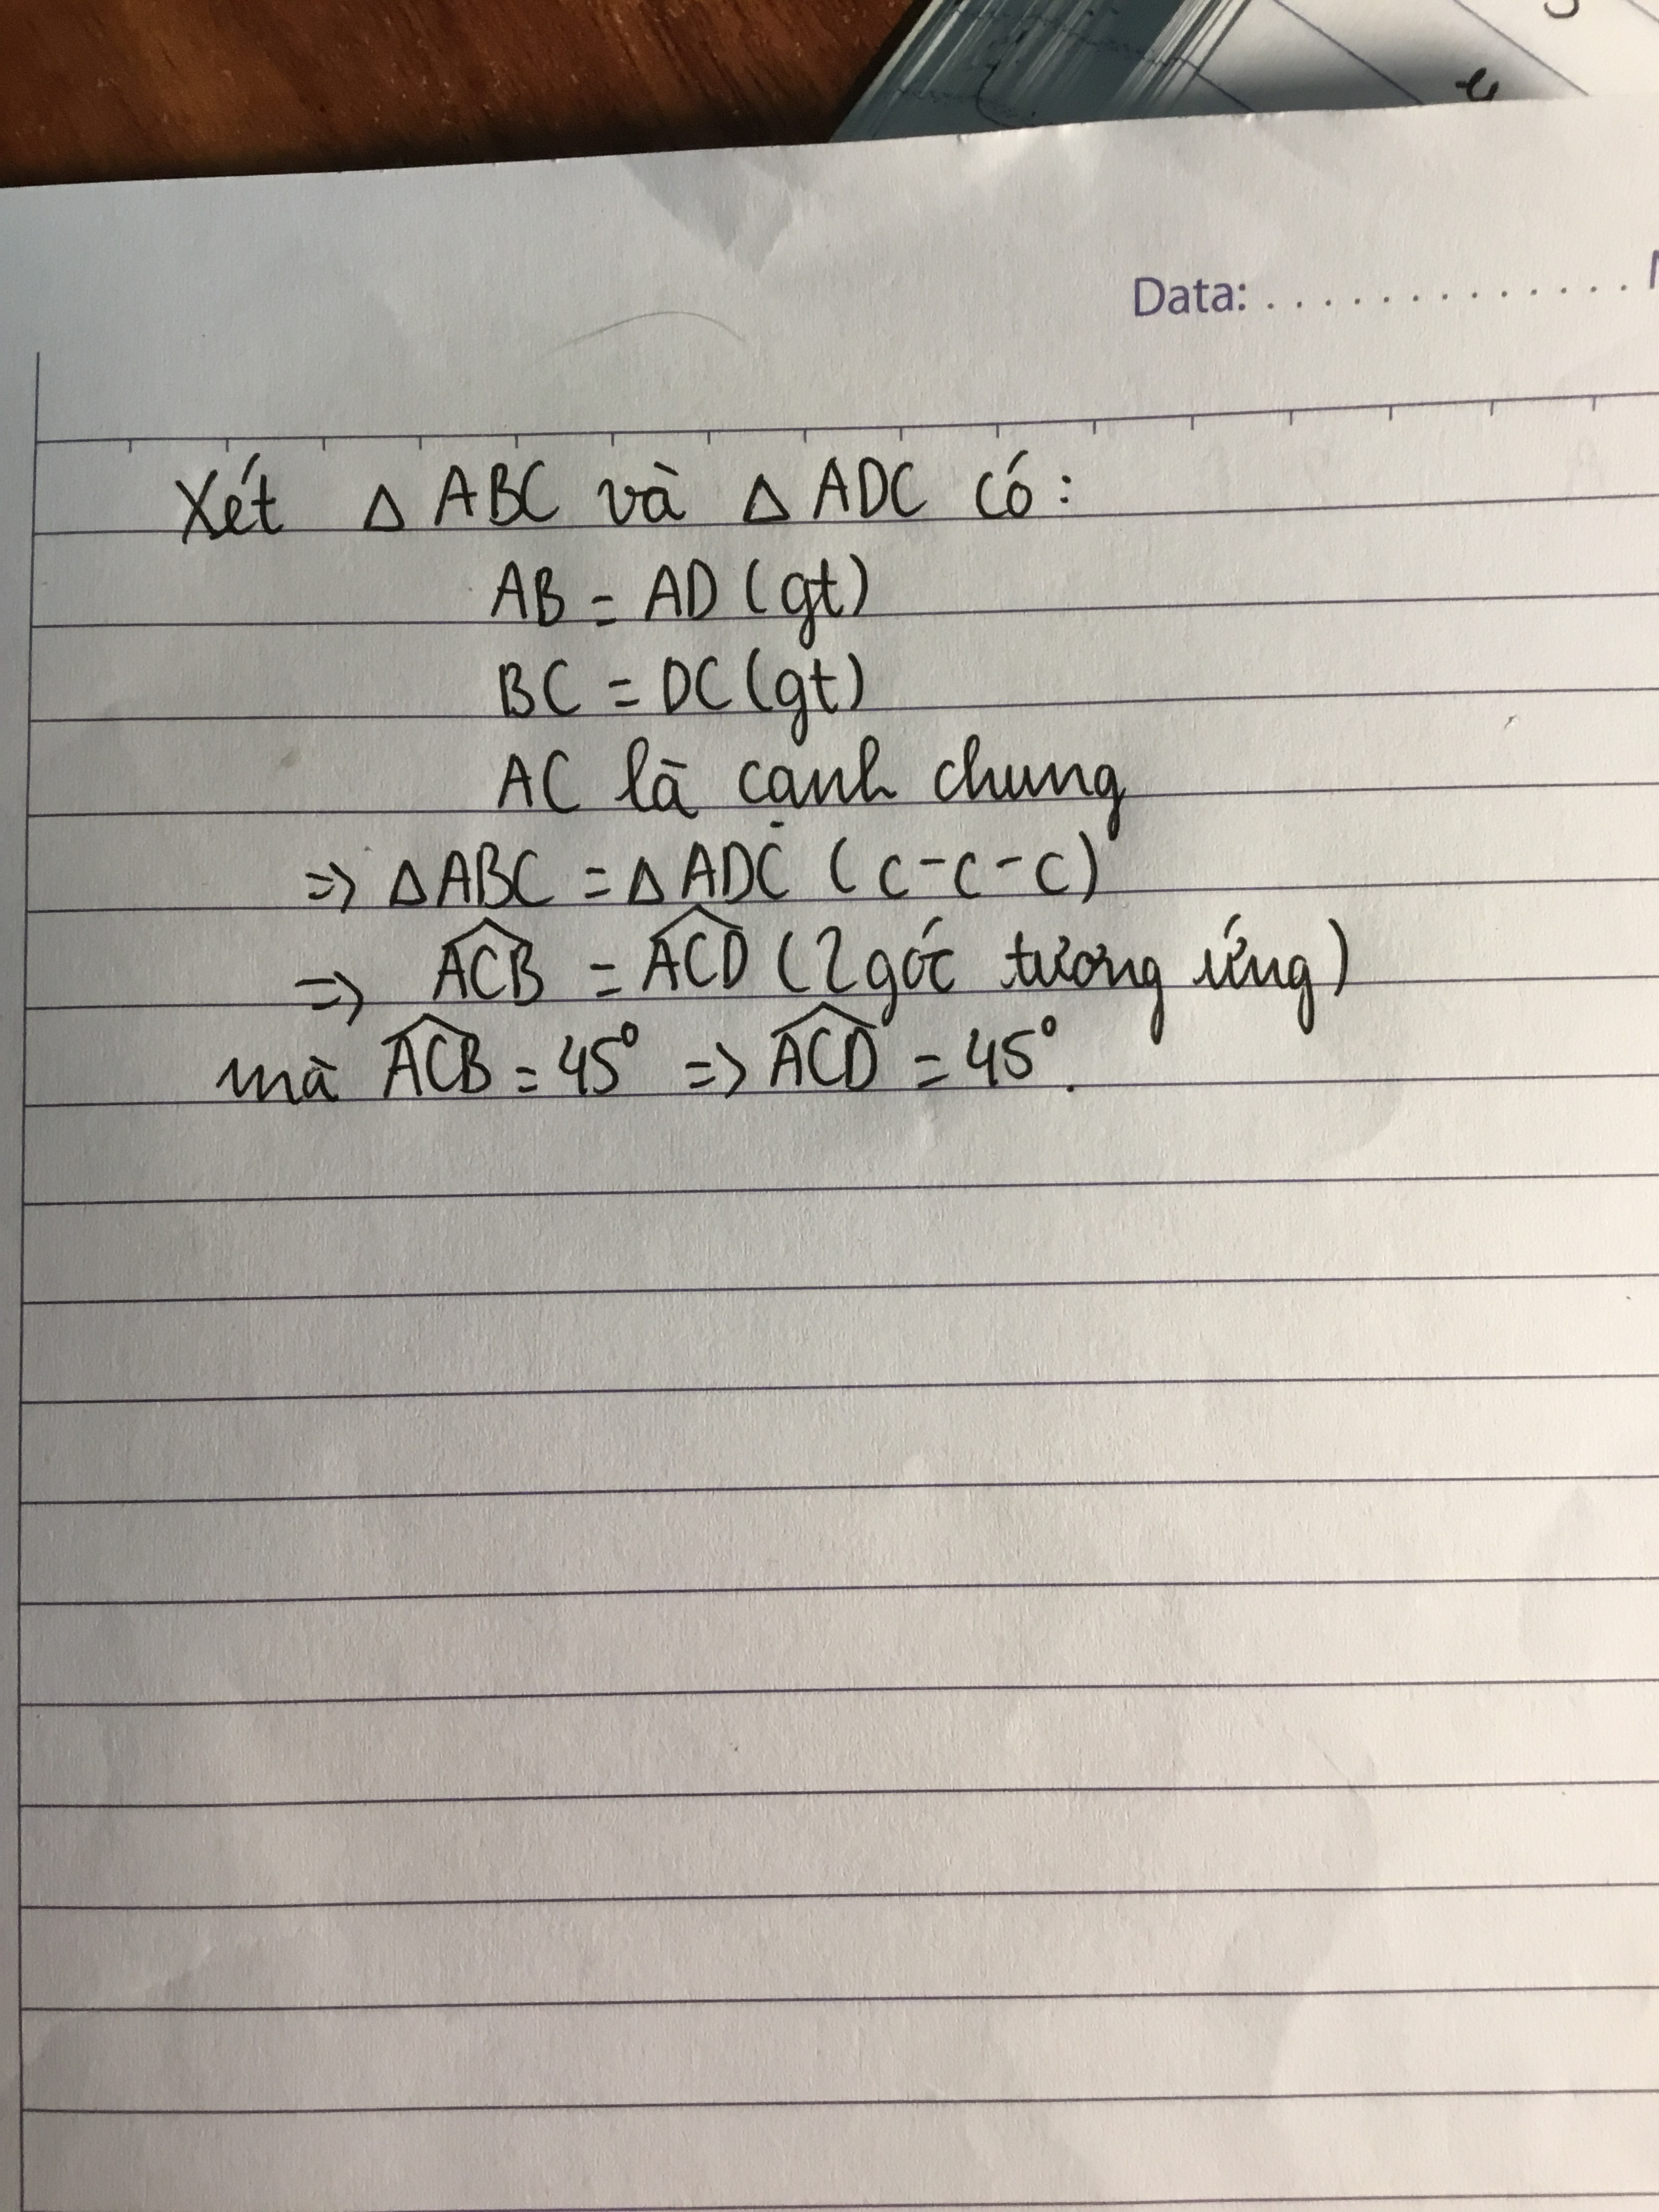 Data: ..............
Xét △ ABC và △ ADC có:
AB = AD (gt)
BC = DC (gt)
AC là cạnh chung
=> △ABC = △ADC (c-c-c)
=> \widehat{ACB} = \widehat{ACD} (2 góc tương ứng)
mà \widehat{ACB} = 45° => \widehat{ACD} = 45°.